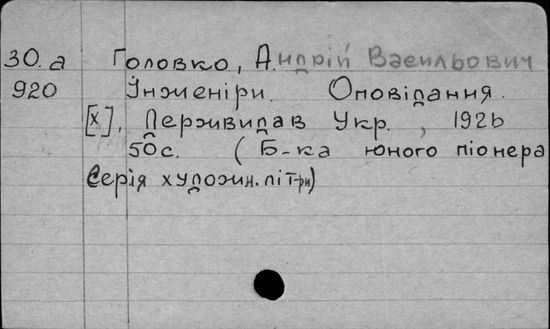 30.а Головко, Андрій Васильович
920 Інженіри. Оповідання.
[Х], Держвидав Укр., 1926
50с. (Б-ка юного піонера
Серія художн. літ-ри)